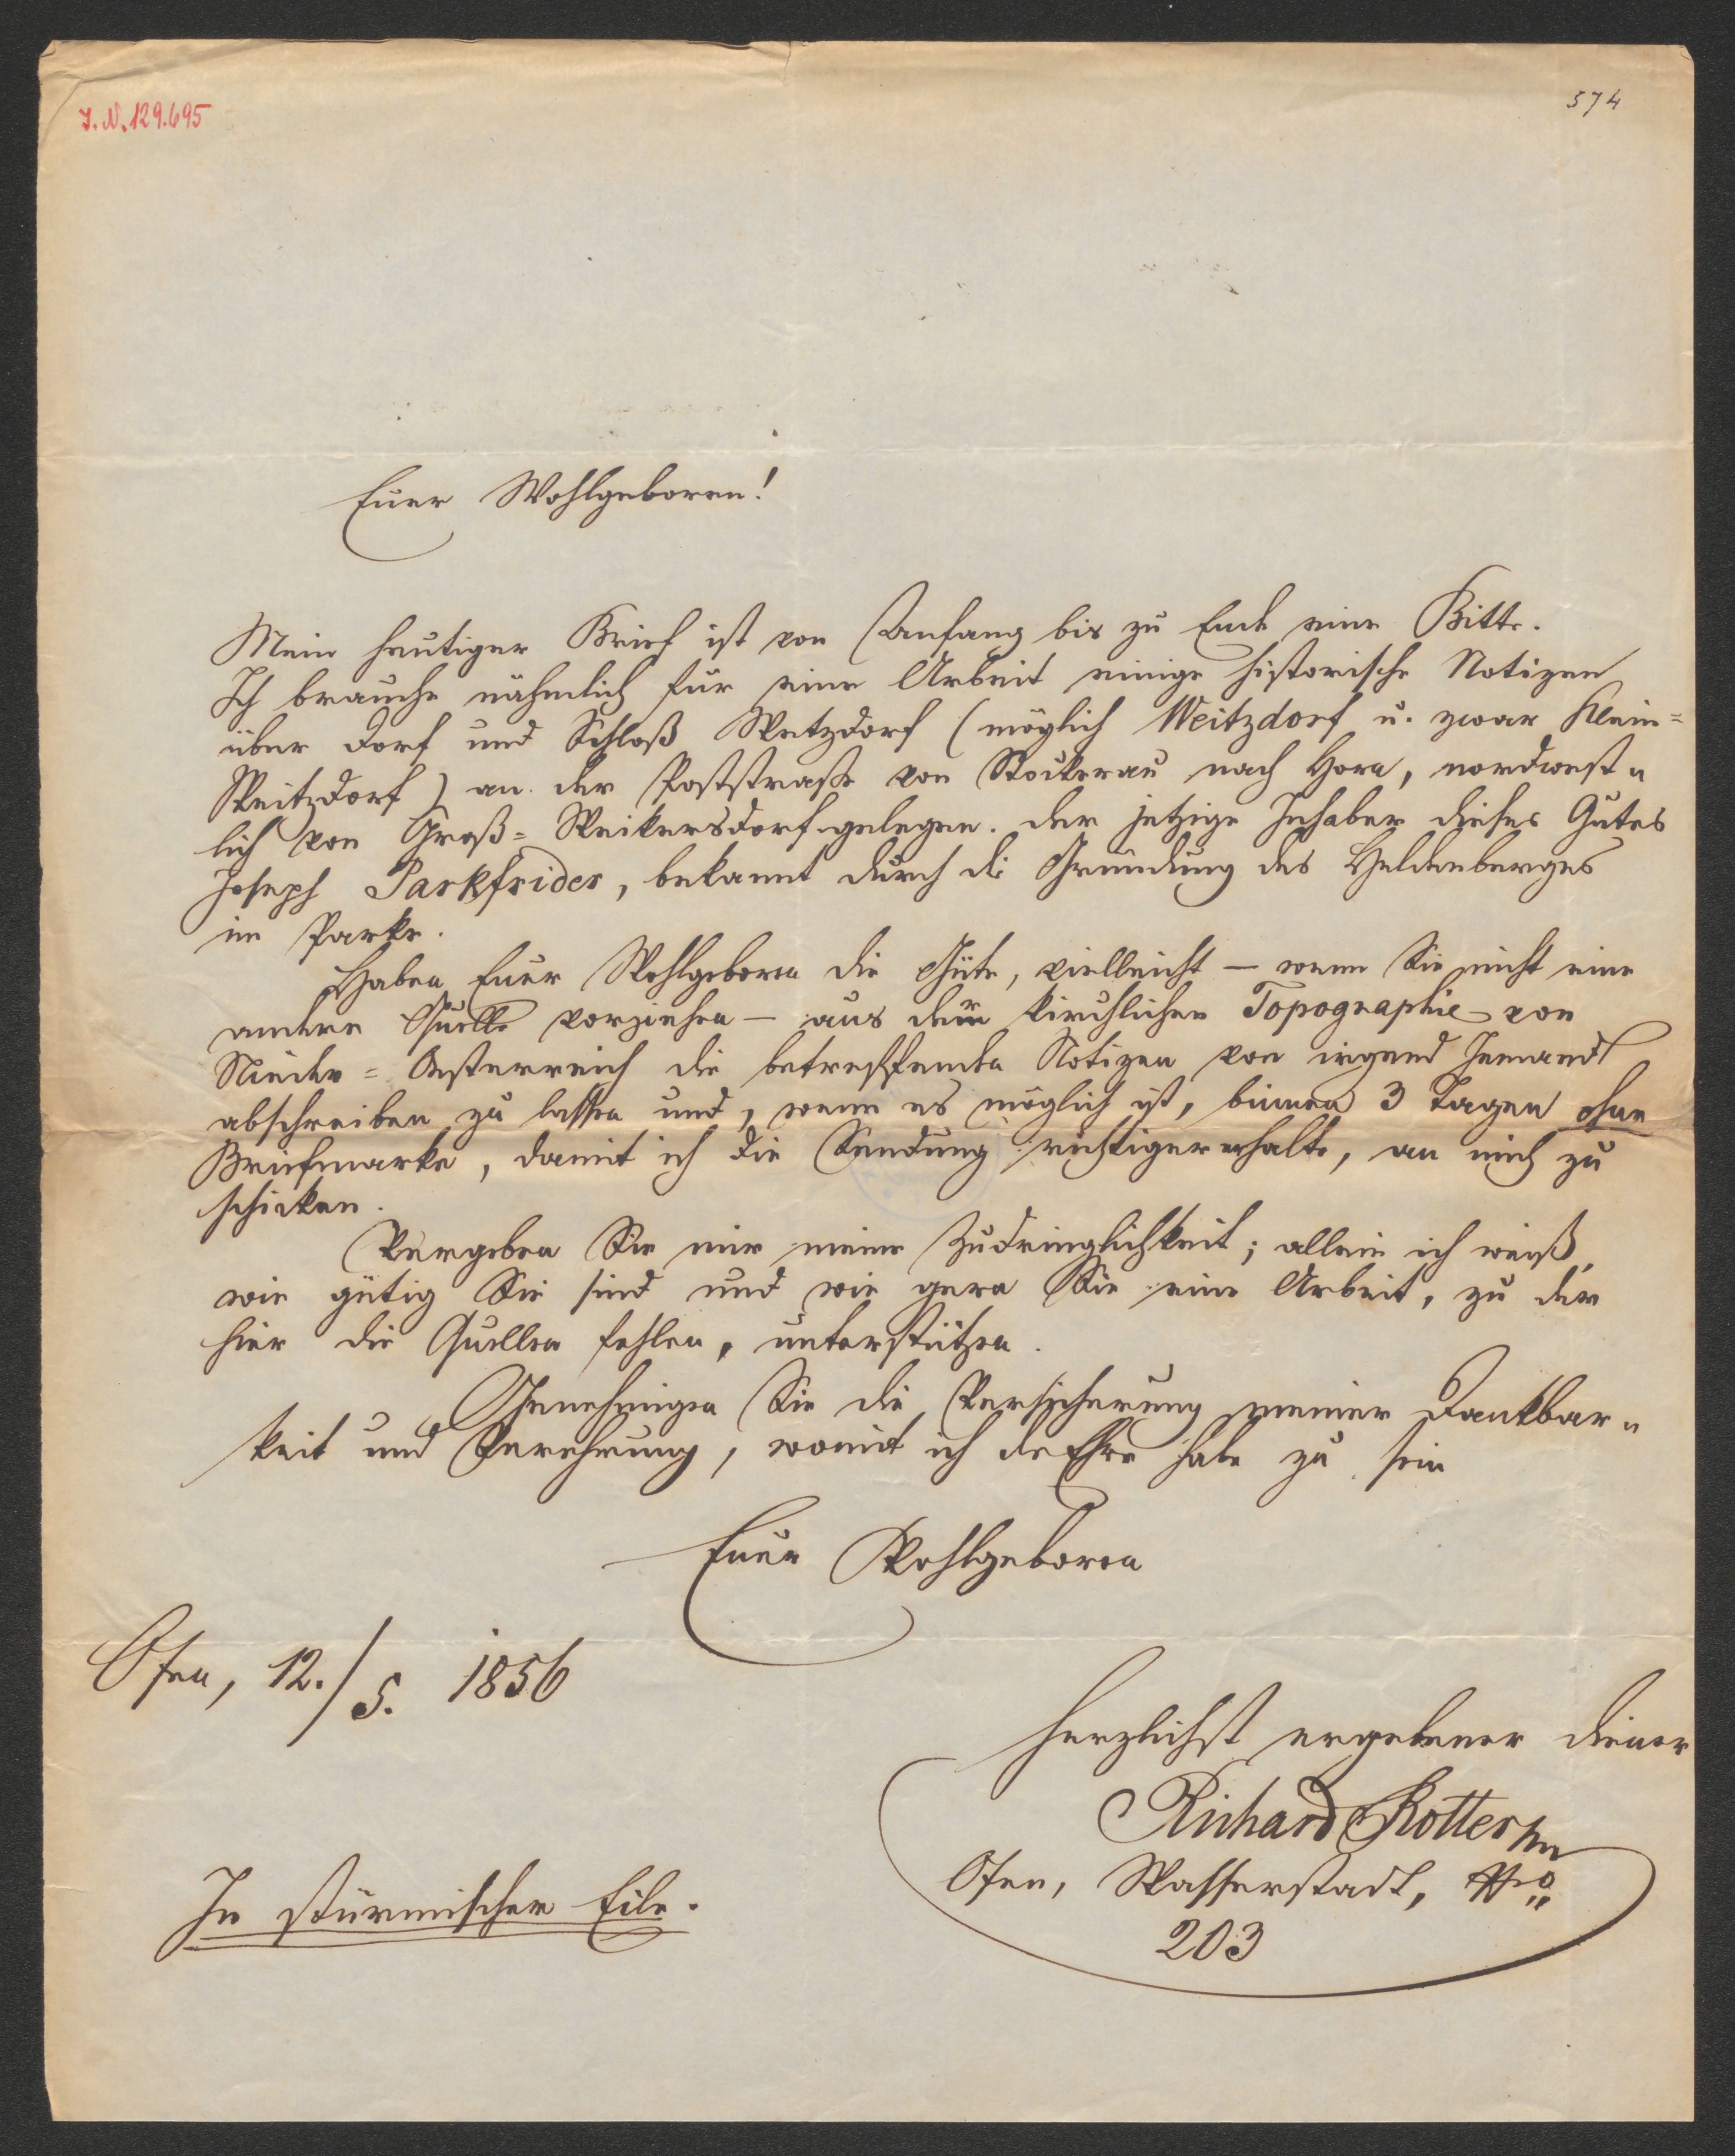 J. N. 129.695
574
Euer Wohlgeboren!
Mein heutiger Brief ist von Anfang bis zu Ende eine Bitte.
Ich brauche nähmlich für eine Arbeit einige historische Notizen
über Dorf und Schloß Wetzdorf (möglich Weitzdorf u. zwar Klein=
Weitzdorf) an der Poststraße von Stockerau nach Horn, nordwest=
lich von Groß=Weikersdorf gelegen. Der jetzige Inhaber dieses Gutes
Joseph Parkfrider, bekannt durch die Gründung des Heldenberges
im Parke.
Haben Euer Wohlgeboren die Güte, vielleicht — wenn Sie nicht eine
andere Quelle vorziehen — aus der kirchlichen Topographie von
Nieder=Oesterreich die betreffenden Notizen von irgend Jemand
abschreiben zu lassen und, wenn es möglich ist, binnen 3 Tagen ohne
Briefmarke, damit ich die Sendung richtiger erhalte, an mich zu
schicken.
Vergeben Sie mir meine Zudringlichkeit; allein ich weiß,
wie gütig Sie sind und wie gern Sie eine Arbeit, zu der
hier die Quellen fehlen, unterstützen.
Genehmigen Sie die Versicherung meiner Dankbar=
keit und Verehrung, womit ich die Ehre habe zu sein
Euer Wohlgeboren
Ofen, 12./5. 1856
herzlichst ergebener Diener
Richard Rotter
Ofen, Wasserstadt, Nro
203
In stürmischer Eile.